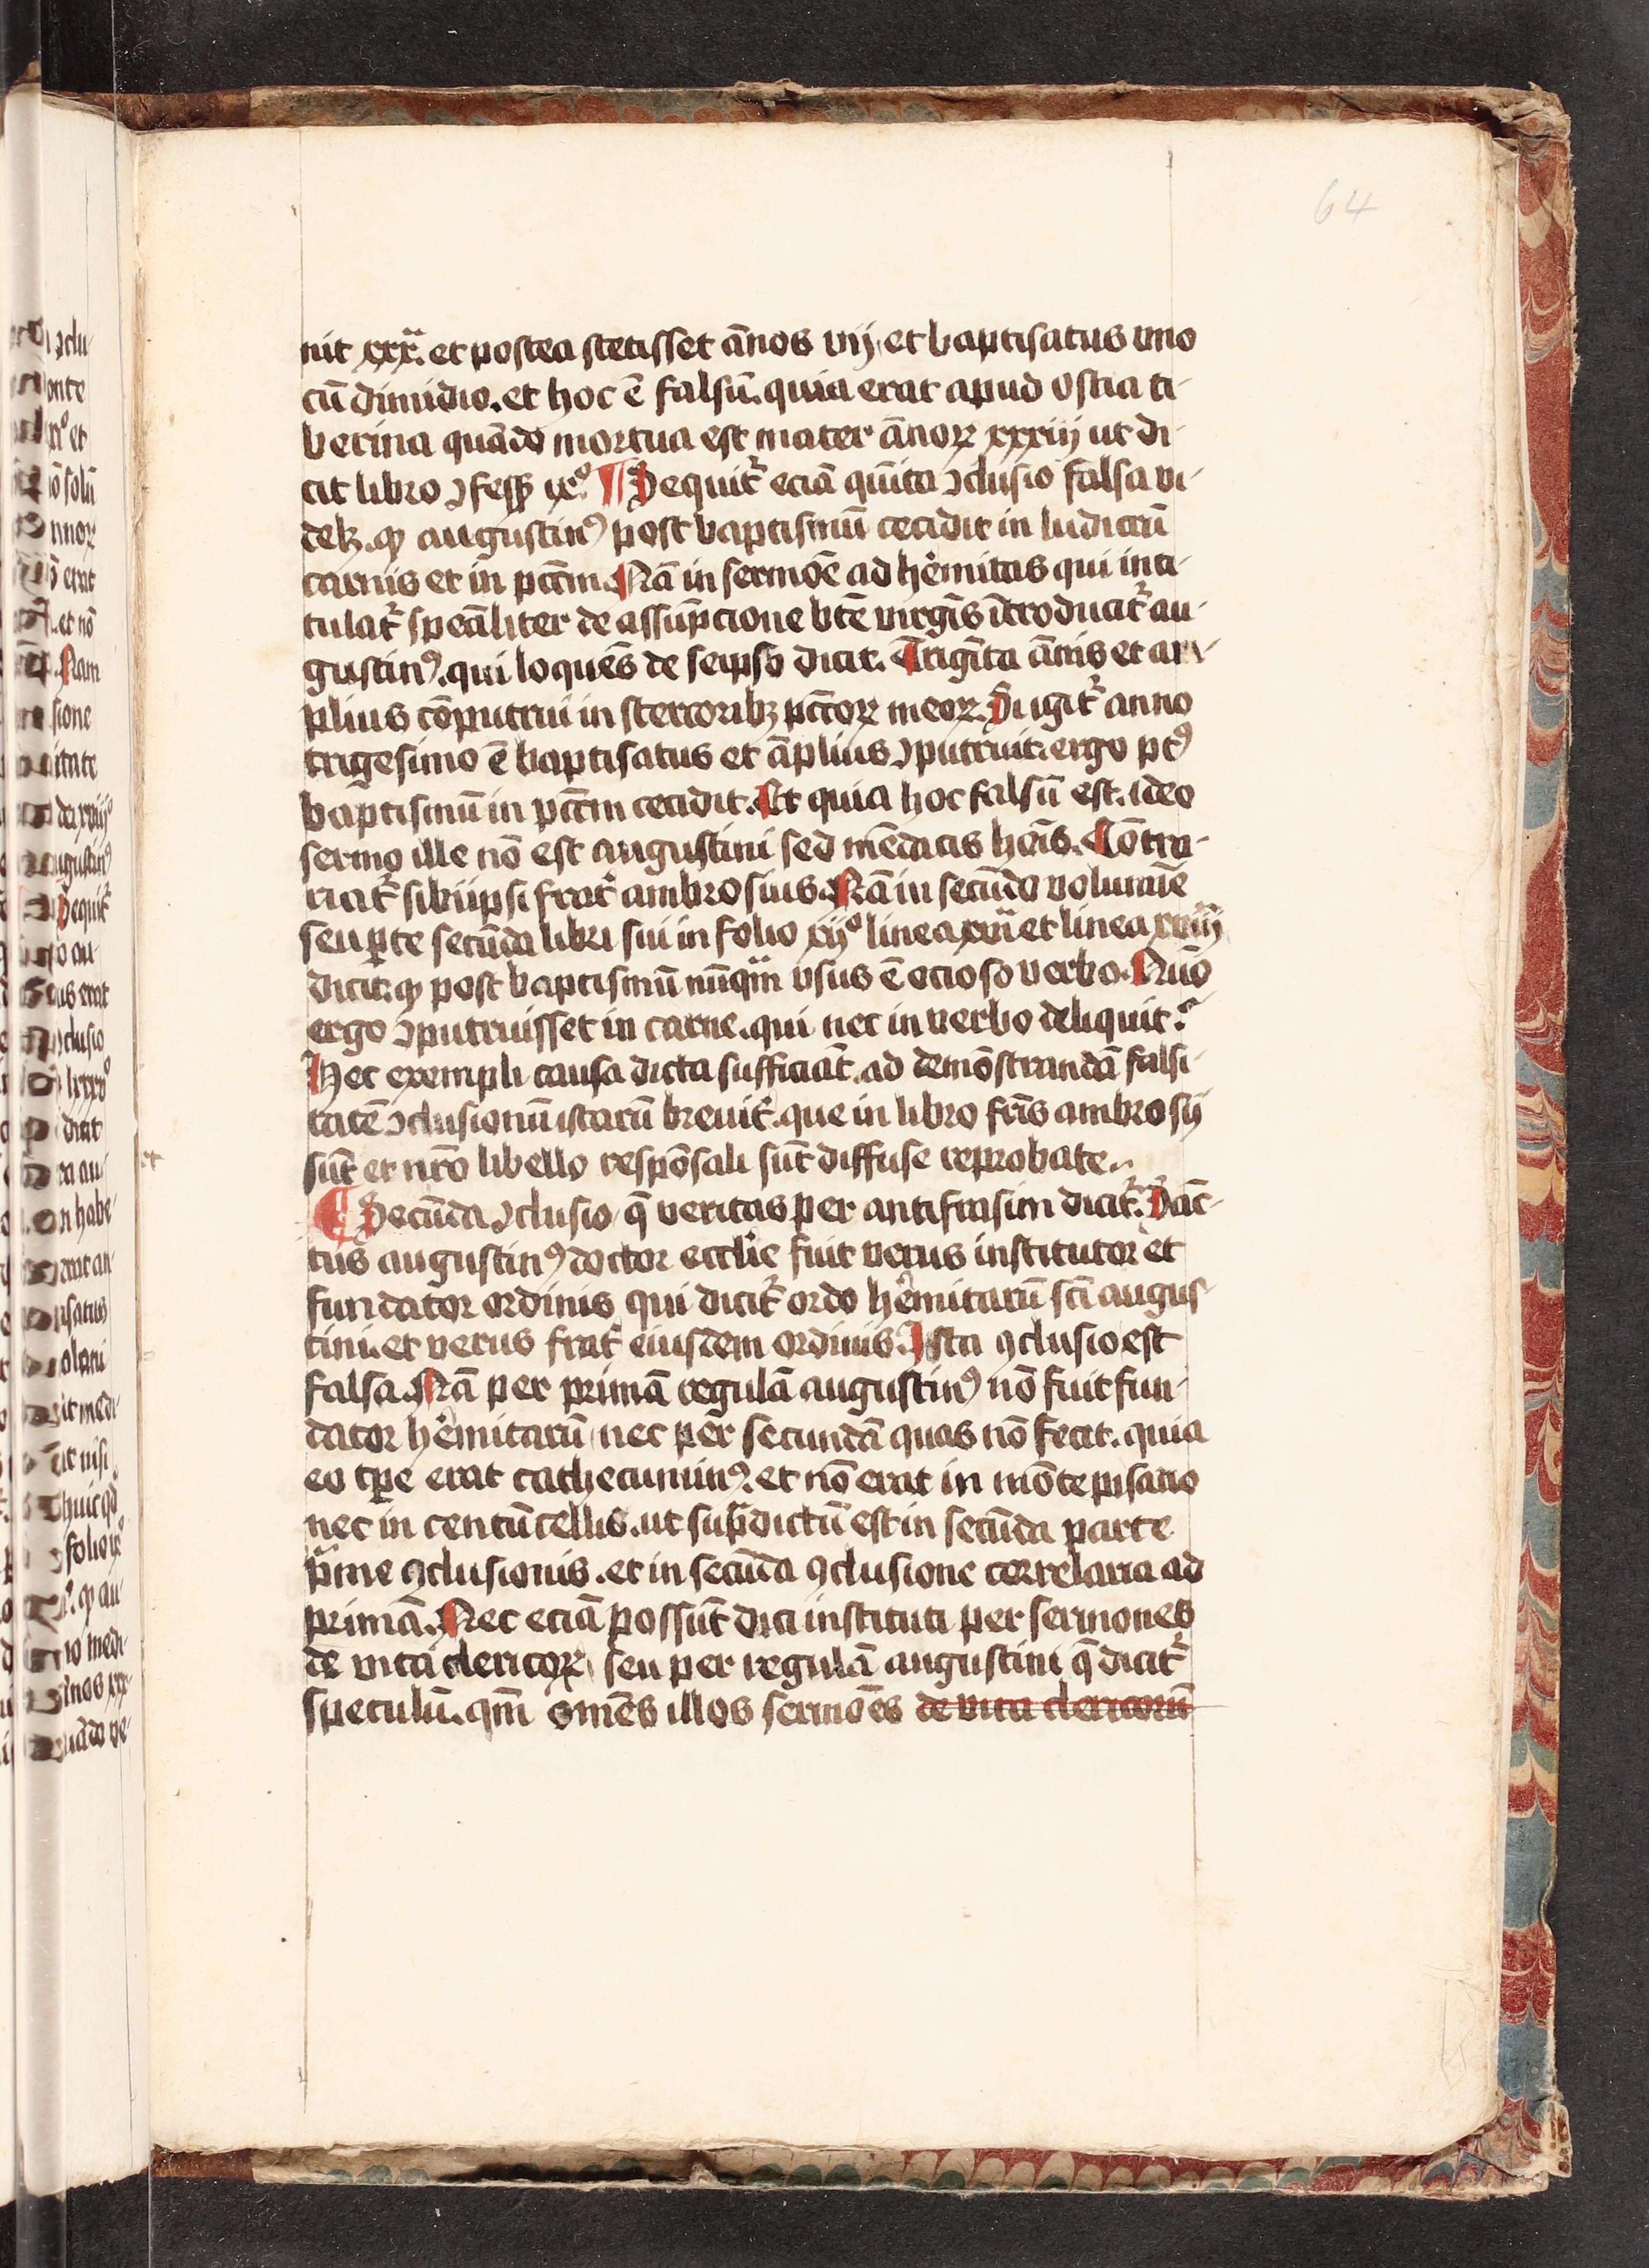 64
nit xxxᵃ. et postea stetisset ān̄os vij. et baptisatus vno
cū dimidio. et hoc ē falsū. quia erat apud ostia ti-
berina quādo mortua est mater ānoꝝ xxxiij ut di-
cit libro ꝯfess̄ ix.º ¶ Sequit᷑ eciā qui̅ta ꝯclusio falsa vi-
delꝫ. ꝙ augustinꝰ post baptismū cecidit in ludicrū
carnis et in pctm̄. Nā in sermōe ad he᷑mitas qui inti-
tulat᷑ speālit̄er de assūpcione bte̅ virgīs ītroducit᷑ au-
gustinꝰ. qui loquēs de seipso dicit. Trigīta ānis et am-
plius cōputrui in stercoribꝫ pctoꝝ meoꝝ. Si igit᷑ anno
trigesimo ē baptisatus et āplius ꝯputruit. ergo ptꝰ
baptismū in pctm̄ cecidit. Et quia hoc falsū est. ideo
sermo ille nō est augustini sed mēdacis hoīs. Contra-
riat᷑ sibiipsi frat᷑ ambrosius. Nā in secūdo volumīe
seu ꝑte secūda libri sui in folio xijº linea xviᵃ et linea xviiijᵃ
dicit. ꝙ post baptismū nūqᵃm vsus ē ocioso verbo. Quō
ergo ꝯputruisset in carne. qui nec in verbo deliquit?
Hec exempli causa dicta sufficiāt. ad demōstrandā falsi-
tatē ꝯclusionū istarū breuit᷑. que in libro fr̄is ambrosij
sūt et nr̄o libello respōsali sūt diffuse reprobate.
¶ Secūda ꝯclusio q̄ veritas per antifrasim dicit᷑. Sāc-
tus augustinꝰ doctor ecclīe fuit verus institutor et
fundator ordinis qui dicit᷑ ordo he᷑mitarū sc̄i augus-
tini. et verus frat᷑ eiusdem ordinis. Ista ꝯclusio est
falsa. Nā per primā regulā augustinꝰ nō fuit fun-
dator he᷑mitarū nec per secundā quas nō fecit. quia
eo tp̄e erat cathecuminꝰ. et nō erat in mōte pisano
nec in centūcellis. ut supᵃdictū est in secūda parte
pⁱme ꝯclusionis. et in secūda ꝯclusione correlaria ad
primā. Nec eciā possūt dici instituti per sermones
de vita clericoꝝ seu per regulā augustini q̄ dicit᷑
speculū. qm̄ om̄es illos sermōes de vita clericorū